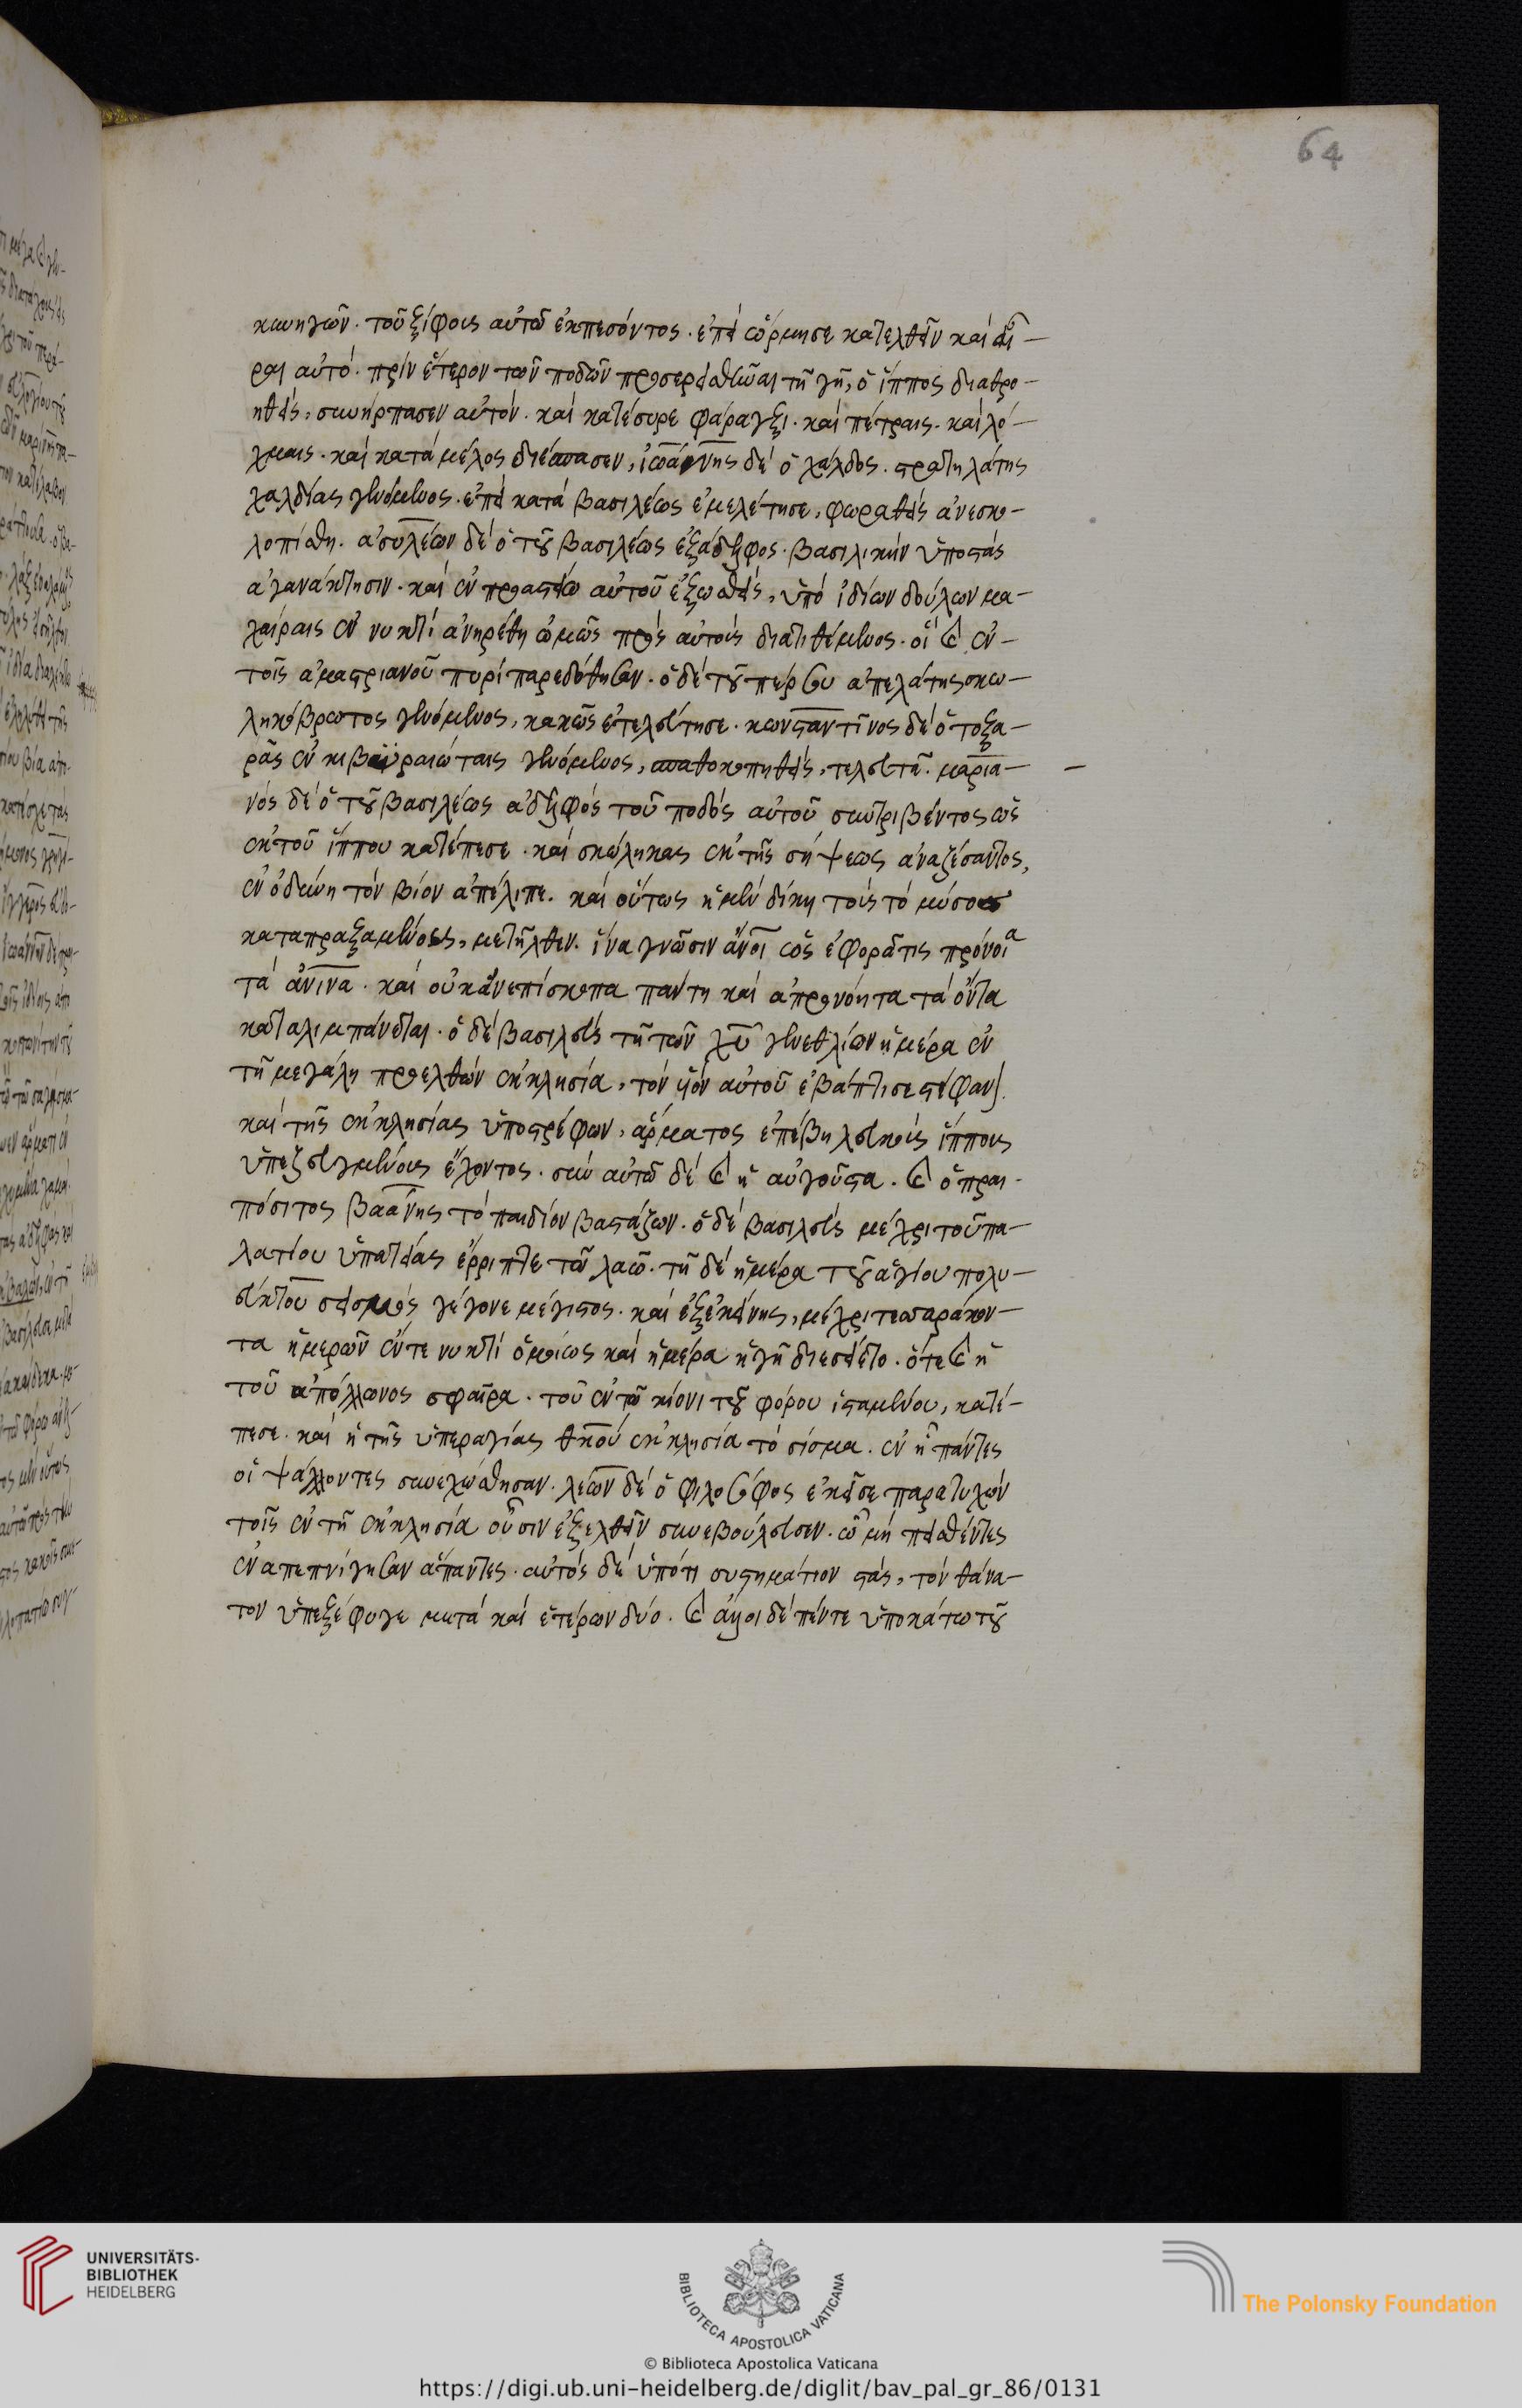 64
κυνηγῶν. τοῦ ξίφους αὐτῶ ἐκπεσόντος. ἐπεὶ ὥρμησε κατελθεῖν καὶ ἆ-
ραι αὐτό. πρὶν ἕτερον τῶν ποδῶν προσερεισθῆναι τῆ γῆ, ὁ ἵππος διαθρο-
ηθεὶς, συνήρπασεν αὐτόν. καὶ κατέσυρε φάραγξι. καὶ πέτραις. καὶ λό-
χμαις. καὶ κατὰ μέλος διέσπασεν, ἰωάννης δὲ ὁ χάλδος. στρατηλάτης
χαλδίας γενόμενος. ἐπεὶ κατὰ βασιλέως ἐμελέτησε, φωραθεὶς ἀνεσκο-
λοπίσθη. ἀσυλέων δὲ ὁ τοῦ βασιλέως ἐξάδελφος. βασιλικὴν ὑποστὰς
ἀγανάκτησιν. καὶ ἐν προαστείω αὐτοῦ ἐξωσθεὶς, ὑπὸ ἰδίων δούλων μα-
χαίραις ἐν νυκτὶ ἀνηρέθη ὠμῶς πρὸς αὐτοὺς διατιθέμενος. οἳ καὶ ἐν
τοῖς ἀμαστριανοῦ πυρὶ παρεδόθησαν. ὁ δὲ τοῦ πέρσου ἀπελάτης σκω-
ληκόβρωτος γενόμενος, κακῶς ἐτελεύτησε. κωνσταντῖνος δὲ ὁ τοξα-
ρᾶς ἐν κιβυραιώταις γενόμενος, σπαθοκοπηθεὶς, τελευτᾶ. μαρια-
νός δὲ ὁ τοῦ βασιλέως ἀδελφός τοῦ ποδός αὐτοῦ συντριβέντος ὡς
ἐκ τοῦ ἵππου κατέπεσε. καὶ σκώληκας ἐκ τῆς σήψεως ἀναζέσαντος,
ἐν ὀδύνη τὸν βίον ἀπέλιπε. καὶ οὕτως ἡ μὲν δίκη τοὺς τὸ μύσος
καταπραξαμένους, μετῆλθεν. ἵνα γνῶσιν ἄνοι ὡς ἐφορᾶ τις πρόνοια
τὰ ἀνινα. καὶ οὐκ ἀνεπίσκοπα πάντη καὶ ἀπρονόητα τὰ ὄντα
καταλιμπάνεται. ὁ δὲ βασιλεὺς τῆ τῶν χυ γενεθλίων ἡμέρα ἐν
τῆ μεγάλη προελθὼν ἐκκλησία, τὸν υἱὸν αὐτοῦ ἐβάπτισε στέφανον.
καὶ τῆς ἐκκλησίας ὑποστρέφων, ἅρματος ἐπέβη λευκοὺς ἵππους
ὑπεζευγμένους ἔχοντος. σὺν αὐτῶ δὲ καὶ ἡ αὐγοῦστα. καὶ ὁ πραι-
πόσιτος βαάνης τὸ παιδίον βαστάζων. ὁ δὲ βασιλεὺς μέχρι τοῦ πα-
λατίου ὑπατείας ἔρριπτε τῶ λαῶ. τῆ δὲ ἡμέρα τοῦ ἁγίου πολυ-
εύκτου σεισμὸς γέγονε μέγιστος. καὶ ἐξ ἐκείνης, μέχρι τεσσαράκον-
τα ἡμερῶν ἔν τε νυκτὶ ὁμοίως καὶ ἡμέρα ἡ γῆ διεσείετο. ὅτε καὶ ἡ
τοῦ ἀπόλλωνος σφαῖρα. τοῦ ἐν τῶ κίονι τοῦ φόρου ἱσταμένου, κατέ-
πεσε. καὶ ἡ τῆς ὑπεραγίας θκου ἐκκλησία τὸ σίσμα. ἐν ἧ πάντες
οἱ ψάλλοντες συνεχώσθησαν. λέων δὲ ὁ φιλόσοφος ἐκεῖσε παρατυχὼν
τοῖς ἐν τῆ ἐκκλησία οὖσιν ἐξελθεῖν συνεβούλευσεν. ὧ μὴ πεισθέντες
ἐναπεπνίγησαν ἅπαντες. αὐτὸς δὲ ὑπό τι συστημάτιον στὰς, τὸν θάνα-
τον ὑπεξέφυγε μετὰ καὶ ἑτέρων δύο. καὶ ἄλλοι δὲ πέντε ὑποκάτω τοῦ
UNIVERSITÄTS-
BIBLIOTHEK
HEIDELBERG
BIBLIOTECA APOSTOLICA VATICANA
The Polonsky Foundation
© Biblioteca Apostolica Vaticana
https://digi.ub.uni-heidelberg.de/diglit/bav_pal_gr_86/0131